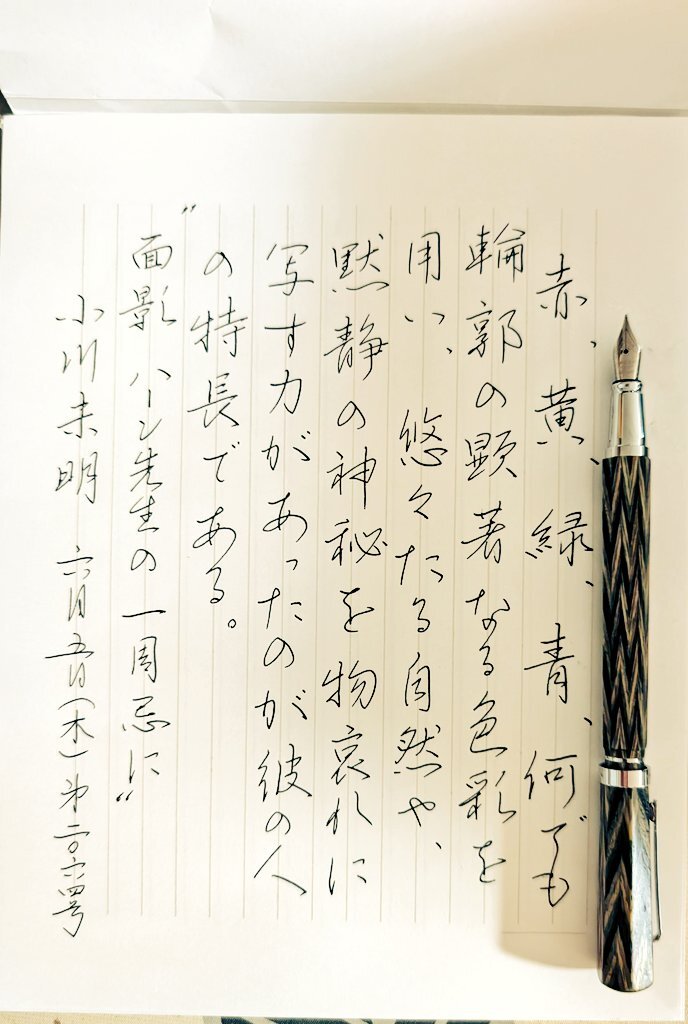 赤、黄、緑、青、何でも
輪郭の顕著なる色彩を
用い、悠々たる自然や、
黙静の神秘を物哀れに
写す力があったのが彼の人
の特長である。
〝面影 ハーン先生の一周忌に〟
小川未明 六月五日(木)第二〇六四号